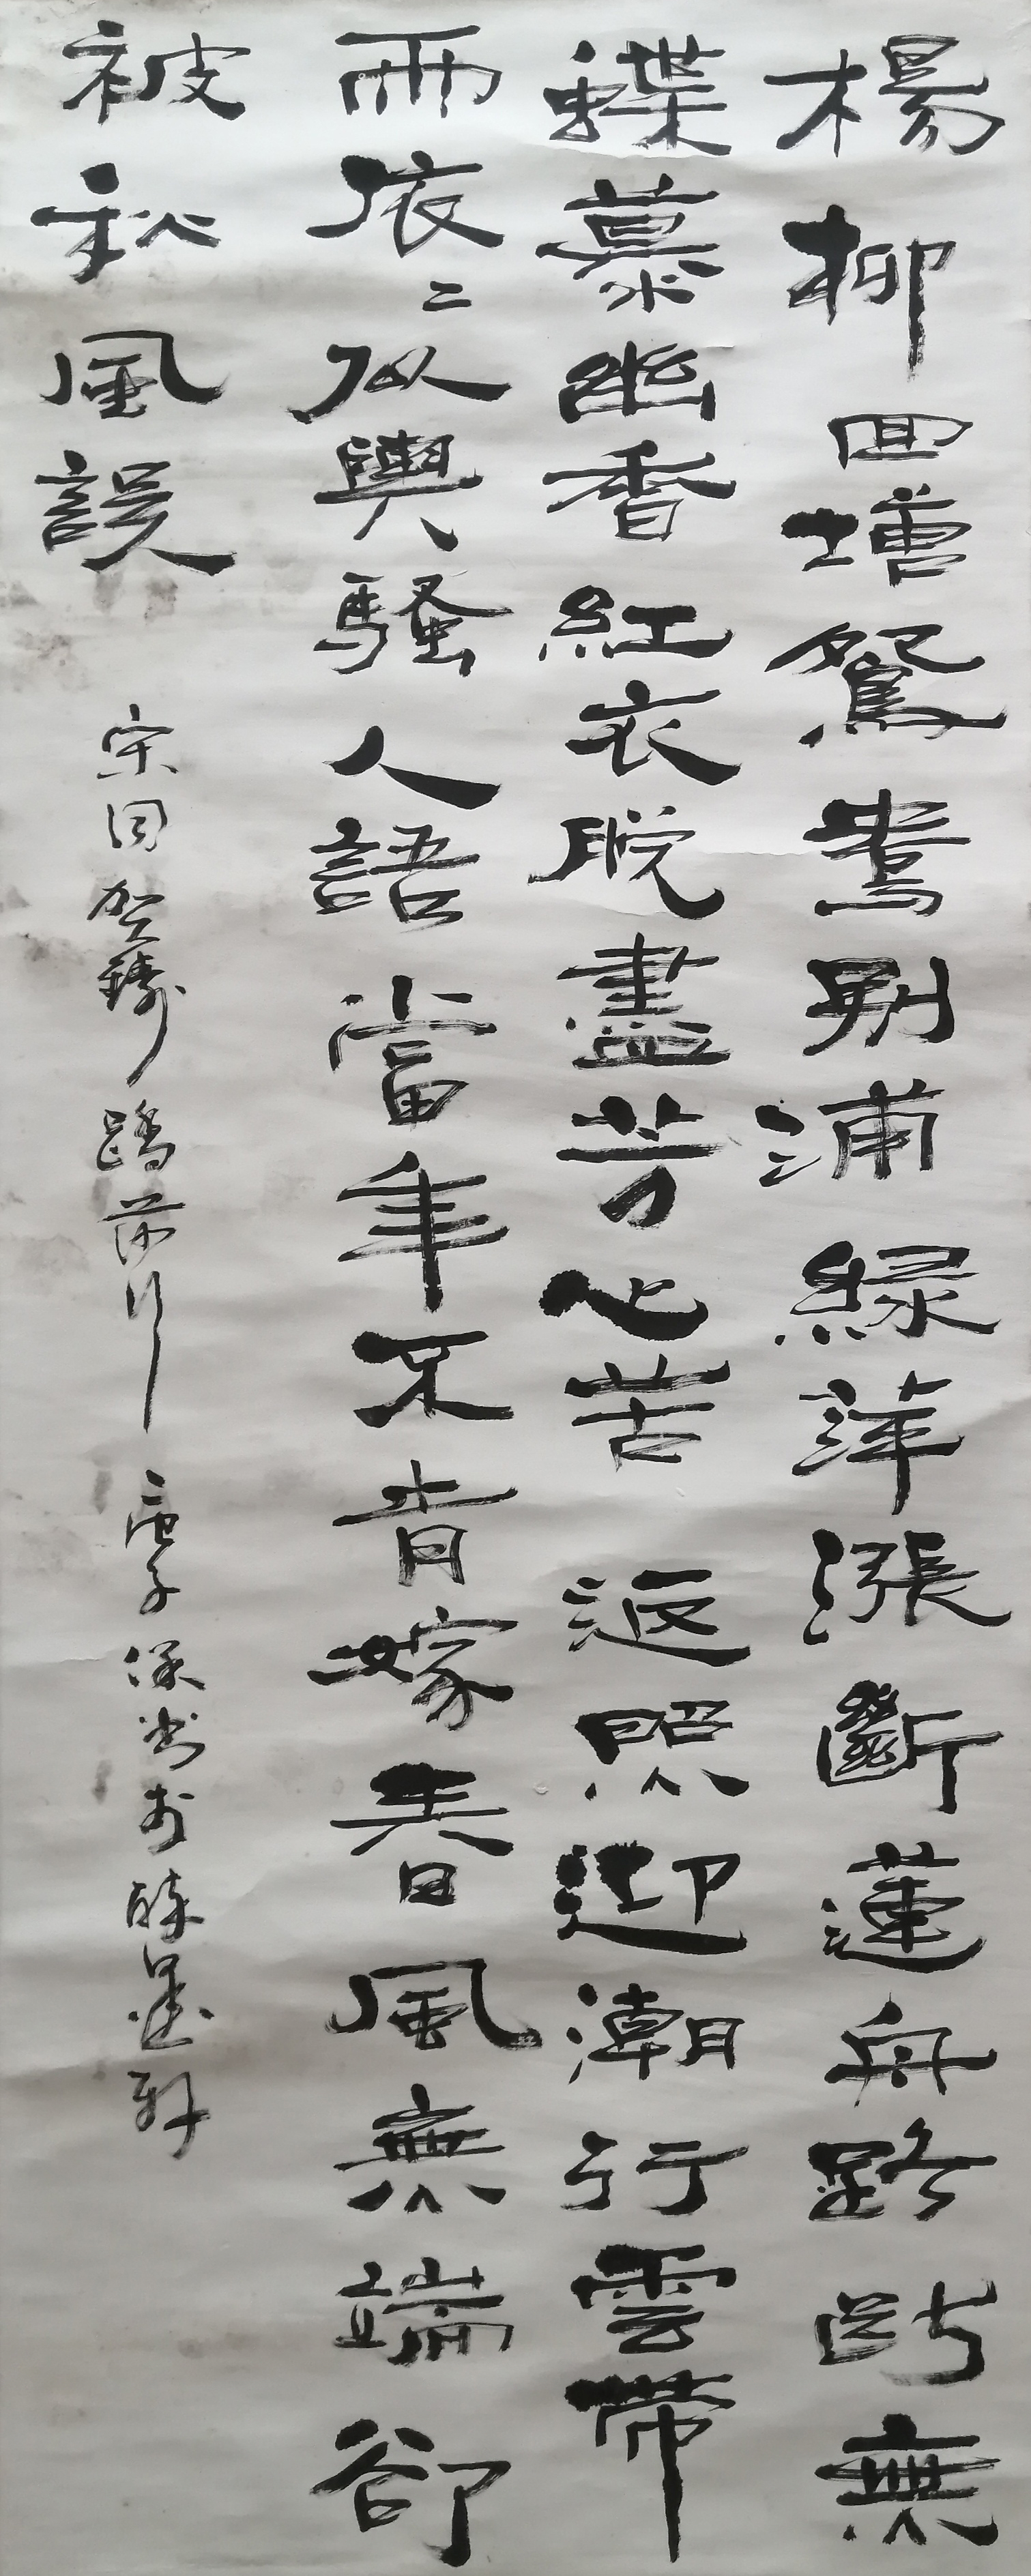 楊柳回增鴛鴦別浦綠萍漲斷蓮舟路斷無
蝶慕幽香紅衣脫盡芳心苦返照迎潮行雲帶
雨依二似與騷人語當年不肯嫁春風無端卻
被秋風誤
宋词賀鑄踏莎行 庚子保书於醉墨軒